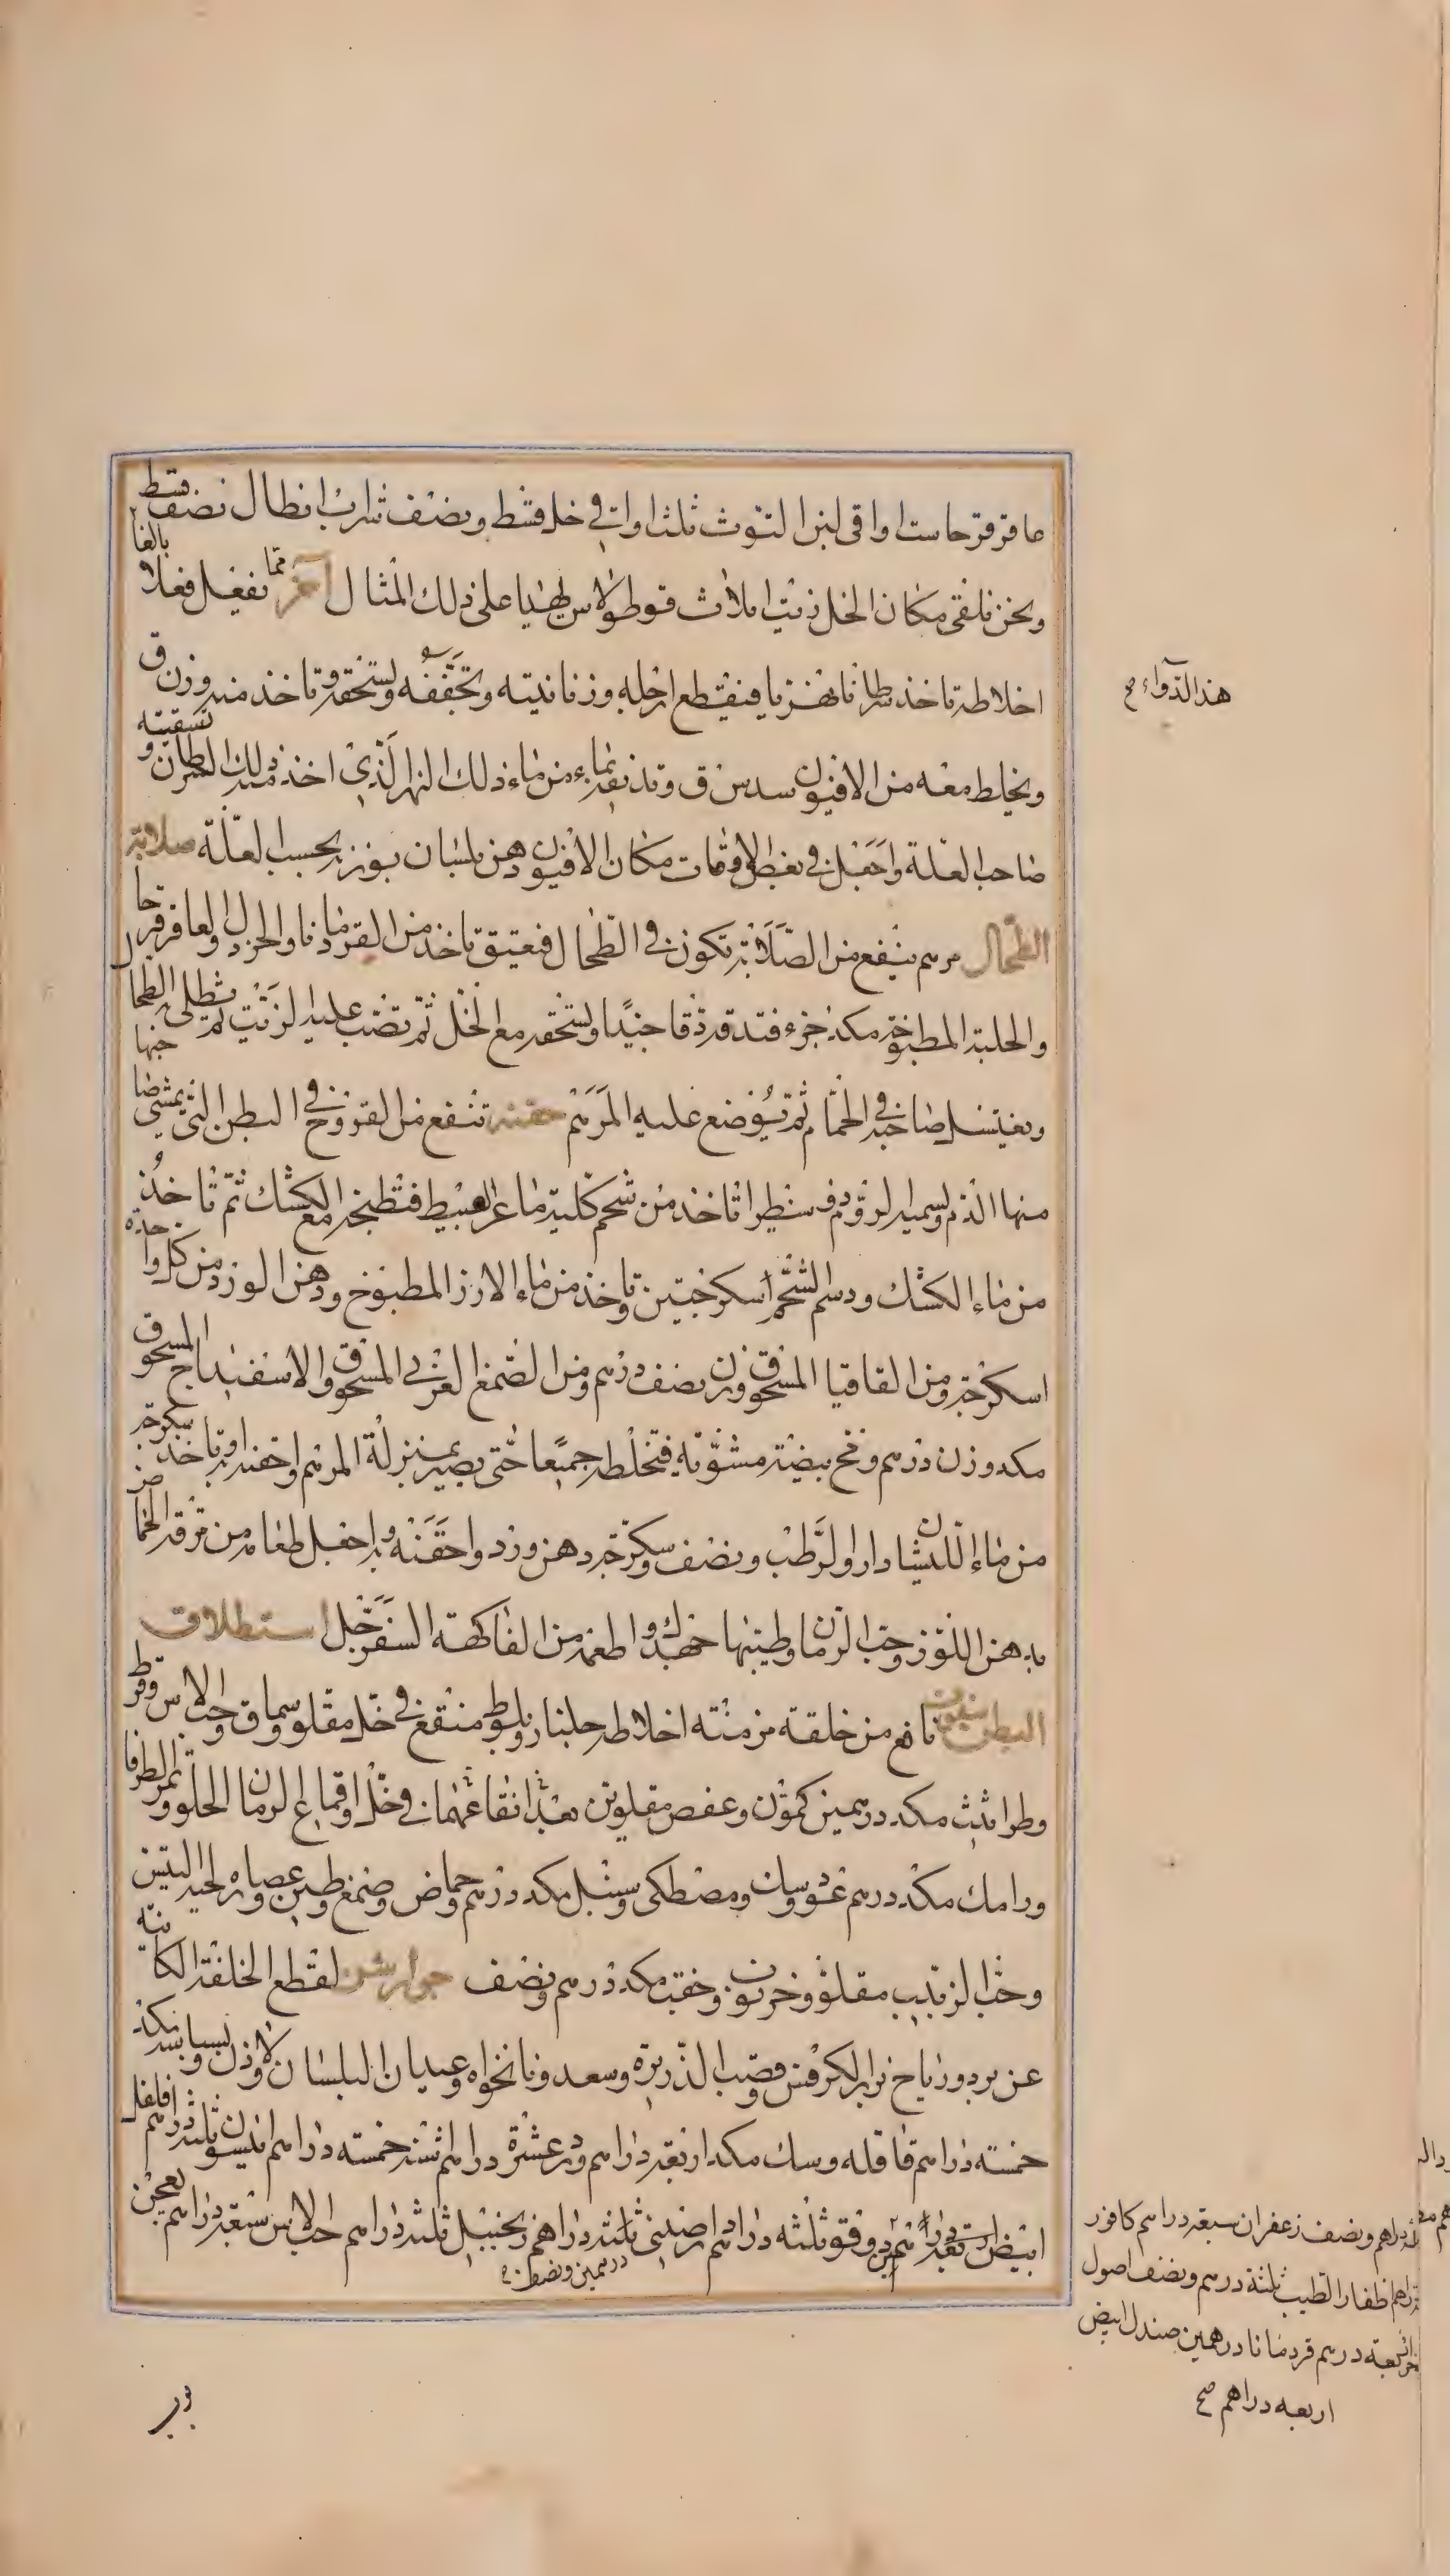 عاقرقرحا ست اواقى لبن التوث ثلث اواقى خل قسط ونصف شراب انطال نصف قسط
ونحن نلقى مكان الخل زيت اثلاث قوطولاس يهيا على ذلك المثال آخر مما نفعل فعلا بالغا
اخلاطه تاخذ سرطانا نهريا فيقطع ارجله وزنانيته وتجففه وتسحقه وتاخذ منه وزن ق
ويخلط معه من الافيون سدس ق وتذيفه بماء من ماء ذلك النهر الذى اخذ منه ذلك السرطان وتسقيه
صاحب العلة واجعل فى بعض الاوقات مكان الافيون دهن بلسان بوزن بحسب العلة صلابة
الطحال مرهم ينفع من الصلابة تكون فى الطحال فتعيق تاخذ من القردمانا والخردل والعاقرقرحا
والحلبة المطبوخة مكد جزء فتدقه دقا جيدا وتسحقه مع الخل ثم تصب عليه الزيت ثم يطلى الطحال
ويغتسل صاحبه فى الحمام ثم يوضع عليه المرهم حقنة تنفع من القروح فى البطن التى يمشى صاحبها
منها الدم ويسميه الروم دسنطريا تاخذ من شحم كلية ماعز العبيط فتطبخه مع الكشك ثم تاخذ
من ماء الكشك ودسم الشحم اسكرجتين وتاخذ من ماء الارز المطبوخ ودهن الورد من كل واحدة
اسكرجة ومن القاقيا المسحوق وزن نصف درهم ومن الصمغ العربى المسحوق والاسفيداج المسحوق
مكد وزن درهم ومح بيضة مشوية فتخلطه جميعا حتى يصير بمنزلة المرهم واحقنه او تاخذ سكرجة
من ماء اللسان دارا والرطب ونصف سكرجة دهن ورد واحقنه به واجعل طعامه من مرقة الحماض
بدهن اللوز وحب الرمان وطيبها جهدك واطعمه من الفاكهة السفرجل استطلاق
البطن سفوف نافع من خلفة مزمنة اخلاطه جلنار وبلوط منقع فى خل مقلو وسماق وحب الاس وقرط
وطراثيث مكد درهمين كمون وعفص مقلوين بعد انقاعهما فى خل واقماع الرمان الحلو وثمر الطرفا
ورامك مكد درهم عود وسان ومصطكى وسنبل مكد درهم وحماض وصمغ وطين وعصاره لحيه التيس
وحب الزبيب مقلو وخرنوب وخقت مكد درهم ونصف جوارشن لقطع الخلفة الكائنة
عن برد ورياح بزر الكرفس وقصب الذريرة وسعد ونانخواه وعيدان البلسان ولاذن وبسباسه مكد
خمسه دراهم قاقله وسك مكد اربعه دراهم ورد عشرة دراهم اشنه خمسه دراهم انيسون ثلثه دراهم افلفل
ابيض اربعه دراهم دوقو ثلثه دراهم دارصينى ثلثه دراهم زنجبيل ثلثه دراهم حب الاس سبعه دراهم يعجن
درهمين ونصف
هذا الدواء صح
دراهم ونصف زعفران سبعه دراهم كافور
اظفار الطيب ثلثة درهم ونصف اصول
اربعه درهم قردمانا درهمين صندل ابيض
اربعه دراهم صح